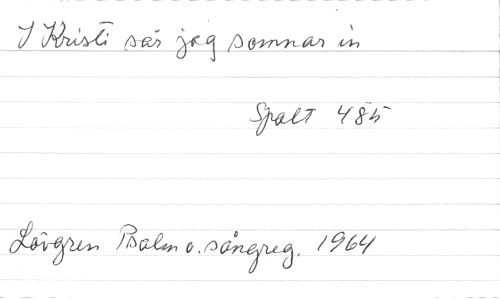 I Kristi sår jag somnar in
Spalt 485
Lövgren Psalm o. sångreg. 1964